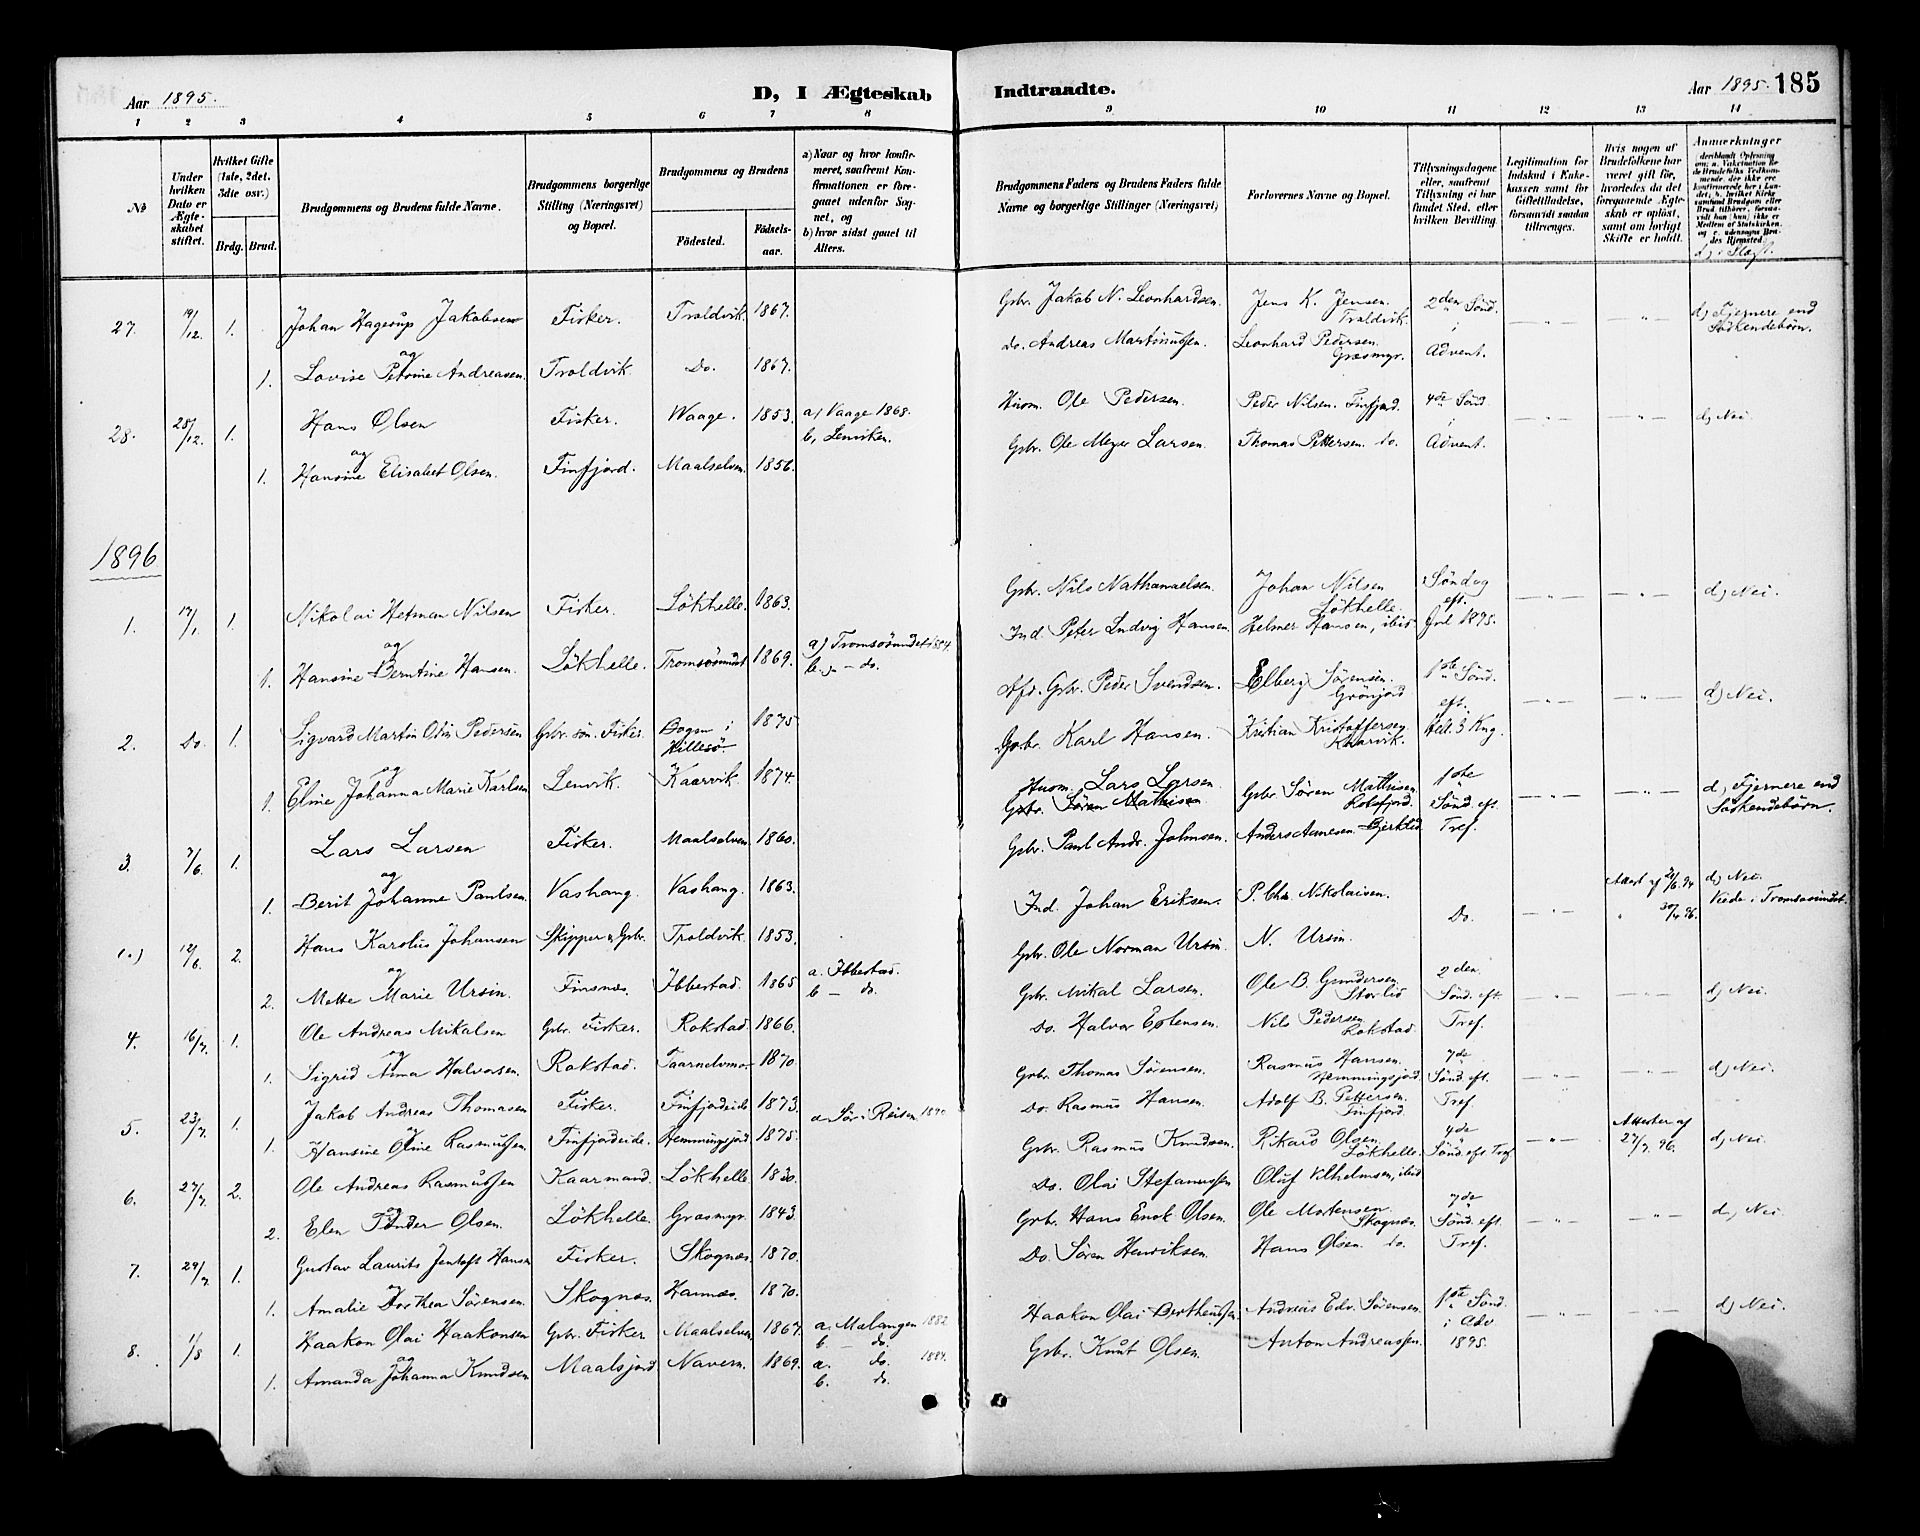 Aar 1895.
D, I Ægteskab
Indtraadte.
Aar 1895. 185
1 2 3 4 5 6 7 8 9 10 11 12 13 14
№
Under hvilken Dato er Ægteskabet stiftet.
Hvilket Gifte (1ste, 2det, 3die osv.)
Brdg. Brud.
Brudgommens og Brudens fulde Navne.
Brudgommens borgerlige Stilling (Næringsvei) og Bopæl.
Brudgommens og Brudens
Fødested. Fødselsaar.
a) Naar og hvor konfirmeret, saafremt Konfirmationen er foregaaet udenfor Sognet, og
b) hvor sidst gaaet til Alters.
Brudgommens Faders og Brudens Faders fulde Navne og borgerlige Stillinger (Næringsvei)
Forlovernes Navne og Bopæl.
Tillysningsdagene eller, saafremt Tillysning ei har fundet Sted, efter hvilken Bevilling.
Legitimation for Indskud i Enkekassen samt for Giftetilladelse, forsaavidt saadan tiltrænges.
Hvis nogen af Brudefolkene har været gift før, hvorledes da det foregaaende Ægteskab er opløst, samt om lovligt Skifte er holdt.
Anmerkninger
27. 19/12. 1. Johan Hagerup Jakobsen Fisker. Troldvik. 1867. Gbr. Jakob N. Leonhardsen. Jens K. Jensen. Troldvik. 2den Sönd. — " — — " — d) Fjernere end Södskendebörn.
og
1. Lovise Petrine Andreasen. Troldvik. Do. 1867. Do. Andreas Martinussen. Leonhard Pedersen. Græsmyr. i Advent.
28. 28/12. 1. Hans Olsen Fisker. Waage. 1853. a) Vaage 1868. b, Lenviken. Huom. Ole Pedersen. Peder Nilsen. Finfjord. 4de Sönd — " — — " — d) Nei.
og
1. Hansine Elisabet Olsen. Finfjord. Maalselven. 1856. Gbr. Ole Meyer Larsen. Thomas Pettersen. do. i Advent.
1896
1. 17/1. 1. Nikolai Hetman Nilsen Fisker. Lökhelle. 1863. Gbr. Nils Nathanaelsen. Johan Nilsen Lökhelle. Söndag eft. — " — — " — d) Nei.
og
1. Hansine Berntine Hansen. Lökhelle. Tromsösund 1869. a) Tromsösundet 1884. b. — do. Ind. Peter Ludvig Hansen. Helmer Hansen, ibid Jul 1895.
2. Do. 1. Sigvard Martin Odin Pedersen Gbr. sön. Fisker. Bogen i Hillesö 1875 Afd. Gbr. Peder Svendsen. Elberg Sörensen. Grönjord 1ste Sönd. eft. — " — — " — d) Nei.
og
1. Eline Johanna Marie Karlsen Lenvik. Kaarvik. 1874. Gbr. Karl Hansen. Kristian Kristoffersen Kaarvik. Hel. 3 Kng.
3. 7/6. 1. Lars Larsen Fisker. Maalselven 1860. Huom. Lars Larsen. Gbr. Sören Mathisen Rossfjord. 1ste Sönd. eft. d, Fjernere end Södskendebörn.
Gbr. Sören Mathisen
og
1. Berit Johanne Paulsen Vashang. Vashang. 1863. Gbr. Paul Andr. Johnsen. Anders Aanesen. Bjerklid Tref.
12/6. 2. Hans Karolus Johansen Skipper & Gbr. Troldvik. 1853. Ind. Johan Eriksen. P. Chr. Nikolaisen. Do. — " — Attest af 21/6.94 " 30/4 96. d) Nei. Viede i Tromsösundet.
og
2. Mette Marie Ursin. Finsnes. Ibbestad. 1865 a. Ibbestad. b — do. Gbr. Ole Norman Ursin. N. Ursin.
4. 16/7. 1. Ole Andreas Mikalsen Gbr. Fisker. Rokstad. 1866. Gbr. Mikal Larsen. Ole B. Gundersen Storlid 2den Sönd. eft — " — — " — d) Nei.
og
1. Sigrid Anna Halvorsen. Rokstad. Taarnelvmo 1870. Do. Halvor Estensen. Nils Pedersen Rokstad. Tref.
5. 23/7. 1. Jakob Andreas Thomasen Fisker. Finfjordeide 1873. a. Sör-Reisen 1890. Gbr. Thomas Sörensen. Rasmus Hansen. Hemmingsjord. 7de Sönd. eft. — " — — " — d) Nei.
og
1. Hansine Oline Rasmussen. Finfjordeide. Hemmingsjord. 1875. Do. Rasmus Hansen. Adolf B. Pettersen. Finfjord. Tref.
6. 27/7. 2. Ole Andreas Rasmussen Kaarmand. Lökhelle. 1830. Gbr. Rasmus Knudsen. Rikard Olsen Lökhelle. 4de Sönd. eft Tref — " — Attester af 27/7. 96. d) Nei.
og
2. Elen Olsen. Lökhelle. Græsmyr. 1843. Do. Olai Stefanussen Oluf Vilhelmsen, ibid
7. 29/7. 1. Gustav Laurits Jentoft Hansen Fisker. Skognæs. 1870. Gbr. Hans Enok Olsen. Ole Mortensen. Skognæs. 7de Sönd. eft — " — — " — d, Nei.
og
1. Amalie Dorthea Sörensen. Skognæs. Hannæs. 1870. Do. Sören Henriksen. Hans Olsen. do. Tref.
8. 1/8 1. Haakon Olai Haakonsen Gbr. Fisker Maalselven 1867. a. Malangen 1882. b. — do. Haakon Olai Bertheussen. Andreas Edv. Sörensen. 1ste Sönd i Adv — " — — " — d) Nei.
og
1. Amanda Johanna Knudsen Maalsjord Navern. 1869. a. do. 1884. b. do. Gbr. Knut Olsen. Anton Andreassen. 1895.